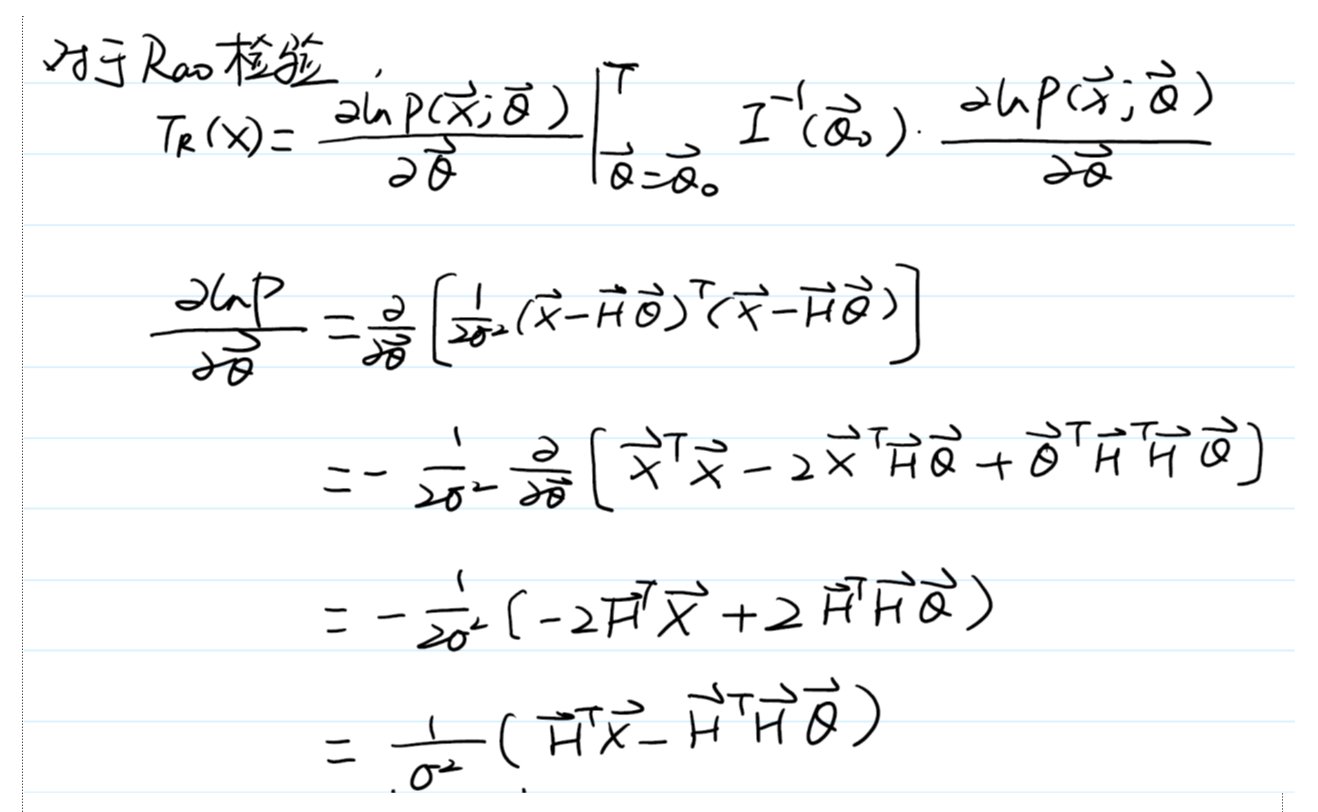 对于Rao检验
T_R(x) = \frac{∂ln p(\vec{x};\vec{θ})}{∂\vec{θ}} |^T_{\vec{θ}=\vec{θ}_0} I^{-1}(\vec{θ}_0) · \frac{∂ln p(\vec{x};\vec{θ})}{∂\vec{θ}}
\frac{∂ln p}{∂\vec{θ}} = \frac{∂}{∂\vec{θ}} [ \frac{1}{2σ^2} (\vec{x} - \vec{H}\vec{θ})^T (\vec{x} - \vec{H}\vec{θ}) ]
= - \frac{1}{2σ^2} \frac{∂}{∂\vec{θ}} [ \vec{x}^T\vec{x} - 2\vec{x}^T\vec{H}\vec{θ} + \vec{θ}^T\vec{H}^T\vec{H}\vec{θ} ]
= - \frac{1}{2σ^2} ( -2\vec{H}^T\vec{x} + 2\vec{H}^T\vec{H}\vec{θ} )
= \frac{1}{σ^2} ( \vec{H}^T\vec{x} - \vec{H}^T\vec{H}\vec{θ} )